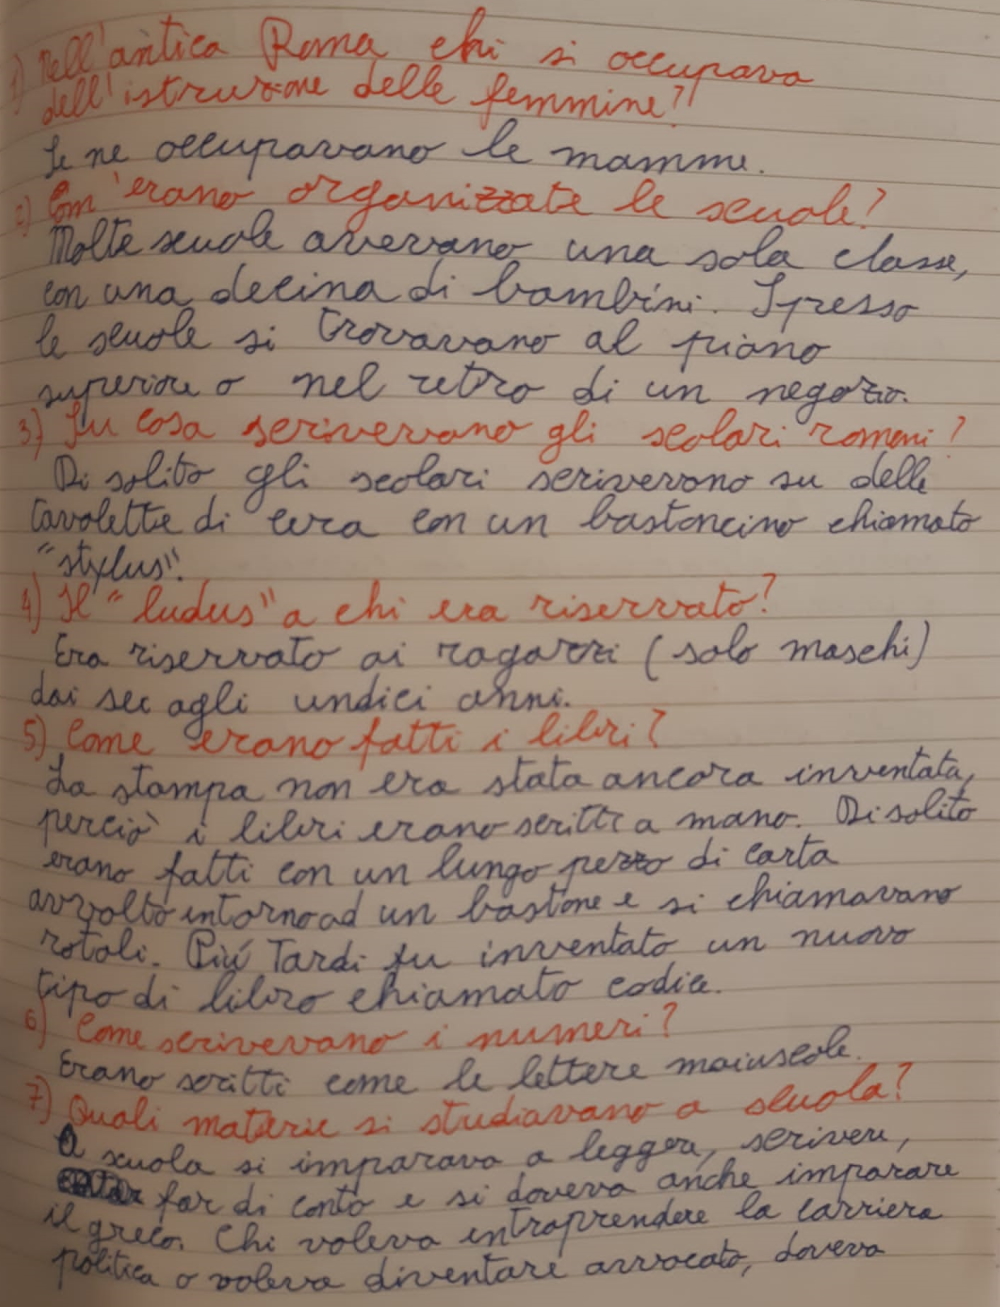 1) Nell'antica Roma chi si occupava
dell'istruzione delle femmine?
Se ne occupavano le mamme.
2) Com'erano organizzate le scuole?
Molte scuole avevano una sola classe,
con una decina di bambini. Spesso
le scuole si trovavano al piano
superiore o nel retro di un negozio.
3) Su cosa scrivevano gli scolari romani?
Di solito gli scolari scrivevano su delle
tavolette di cera con un bastoncino chiamato
"stylus".
4) Il "ludus" a chi era riservato?
Era riservato ai ragazzi (solo maschi)
dai sei agli undici anni.
5) Come erano fatti i libri?
La stampa non era stata ancora inventata,
perciò i libri erano scritti a mano. Di solito
erano fatti con un lungo pezzo di carta
avvolto intorno ad un bastone e si chiamavano
rotoli. Piú Tardi fu inventato un nuovo
tipo di libro chiamato codice.
6) Come scrivevano i numeri?
Erano scritti come le lettere maiuscole.
7) Quali materie si studiavano a scuola?
A scuola si imparava a leggere, scrivere,
far di conto e si doveva anche imparare
il greco. Chi voleva intraprendere la carriera
politica o voleva diventare avvocato, doveva